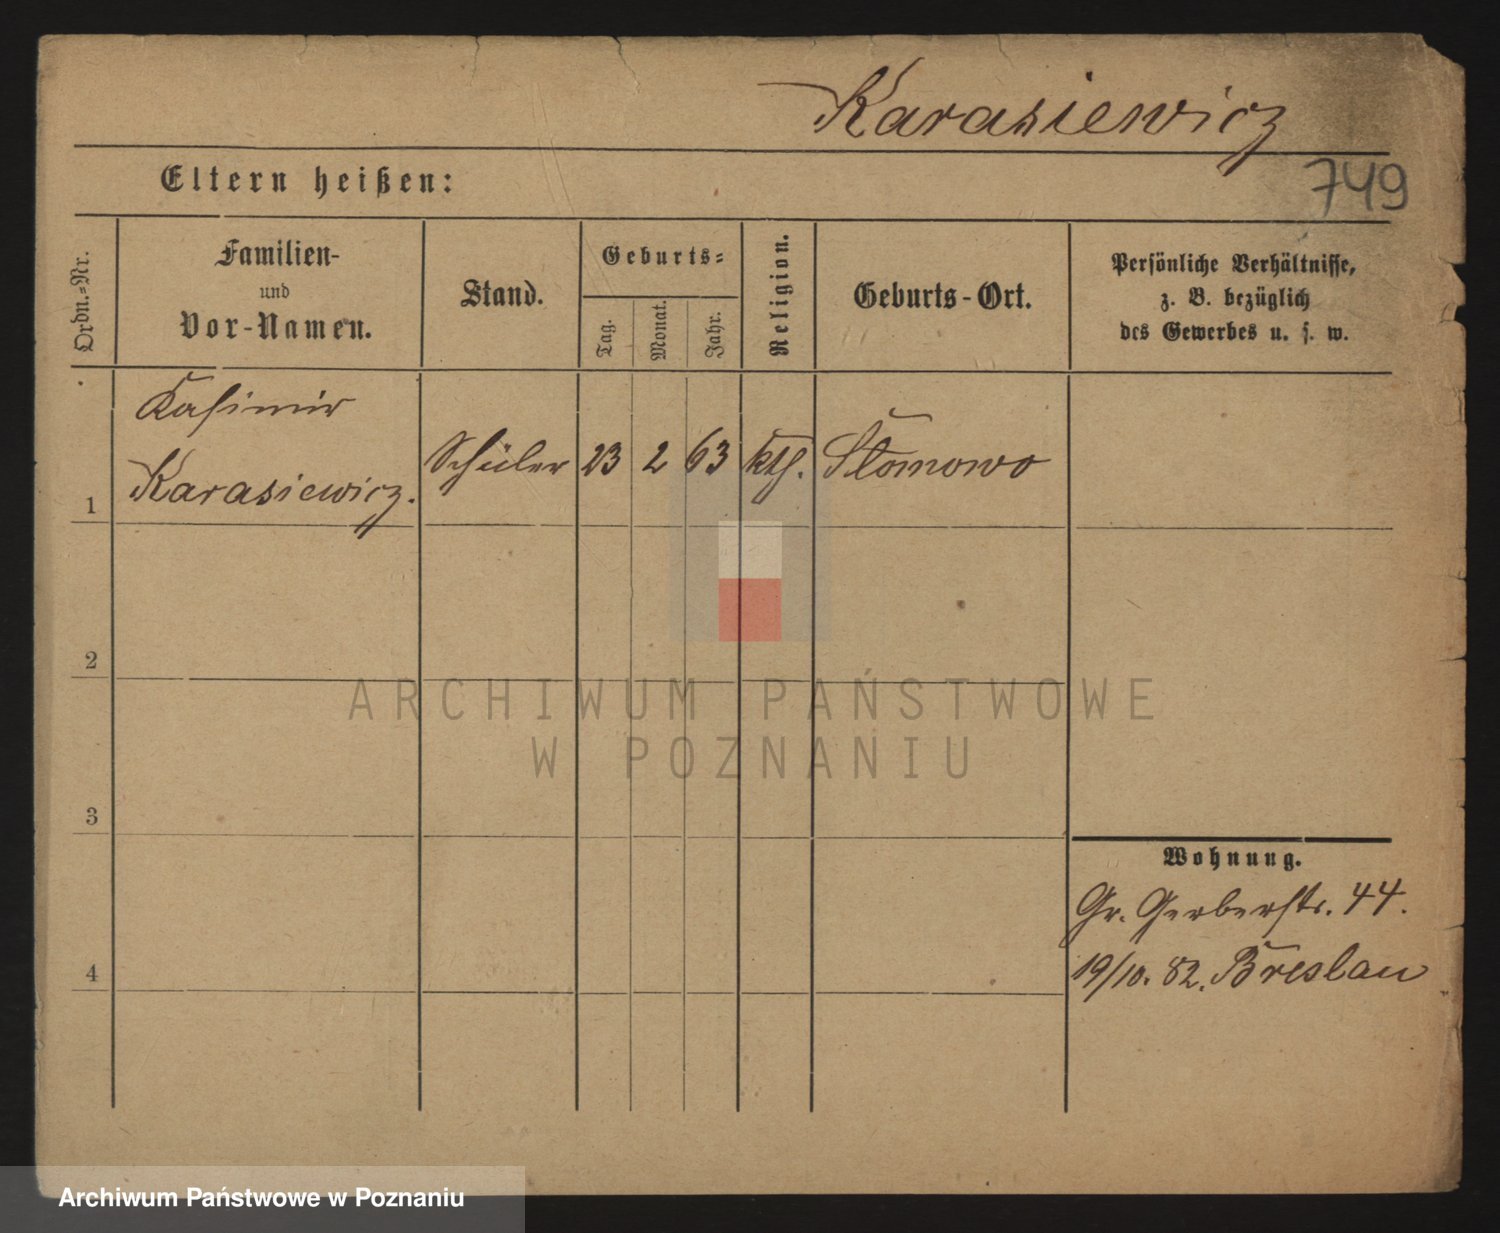 Karasiewicz
749
Eltern heißen:
Ordn.-Nr.
Familien-
und
Vor-Namen.
Stand.
Geburts-
Tag.
Monat.
Jahr.
Religion.
Geburts-Ort.
Persönliche Verhältnisse,
z. B. bezüglich
des Gewerbes u. s. w.
1
Kasimir
Karasiewicz.
Schüler
23
2
63
kth.
Słomowo
2
3
4
Wohnung.
Gr. Gerberstr. 44.
19/10. 82. Breslau
ARCHIWUM PAŃSTWOWE
W POZNANIU
Archiwum Państwowe w Poznaniu